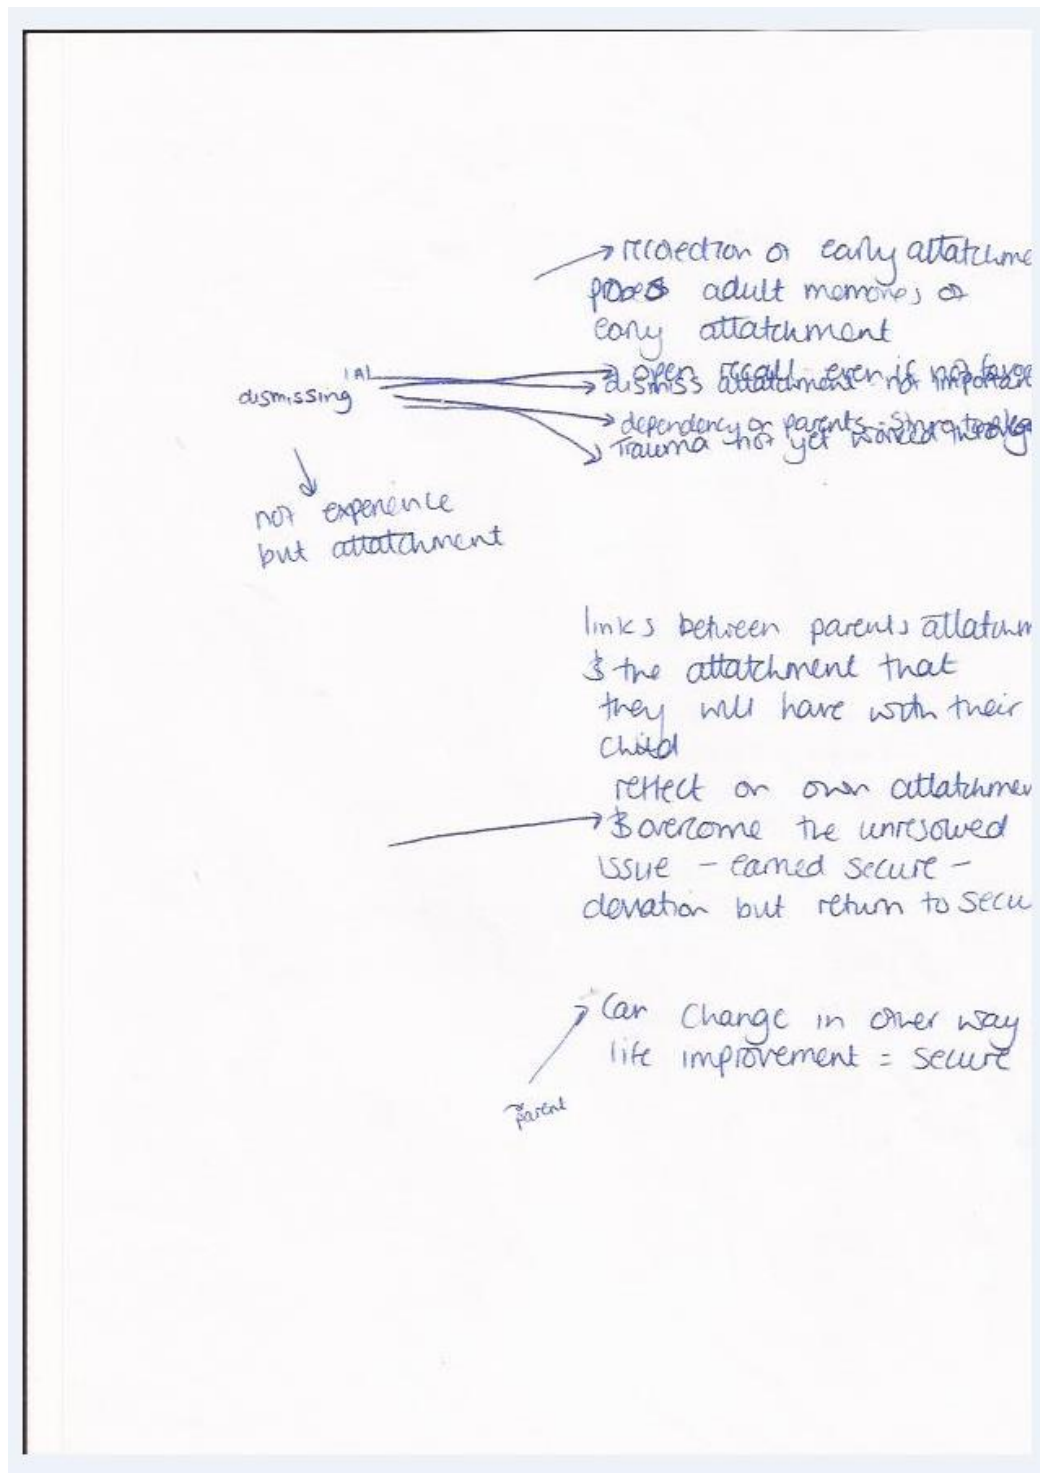 recolection of early attatchme
probes adult memories of
early attatchment
open recall even if not favore
(A)
dismissing
dismiss attatchment - not important
dependency on parents - still
Trauma not yet worked throug
not experience
but attatchment
links between parents attatchm
& the attatchment that
they will have with their
child
reflect on own attatchmen
& overcome the unresolved
issue - earned secure -
deviation but return to secu
Can change in other way
life improvement = secure
parent